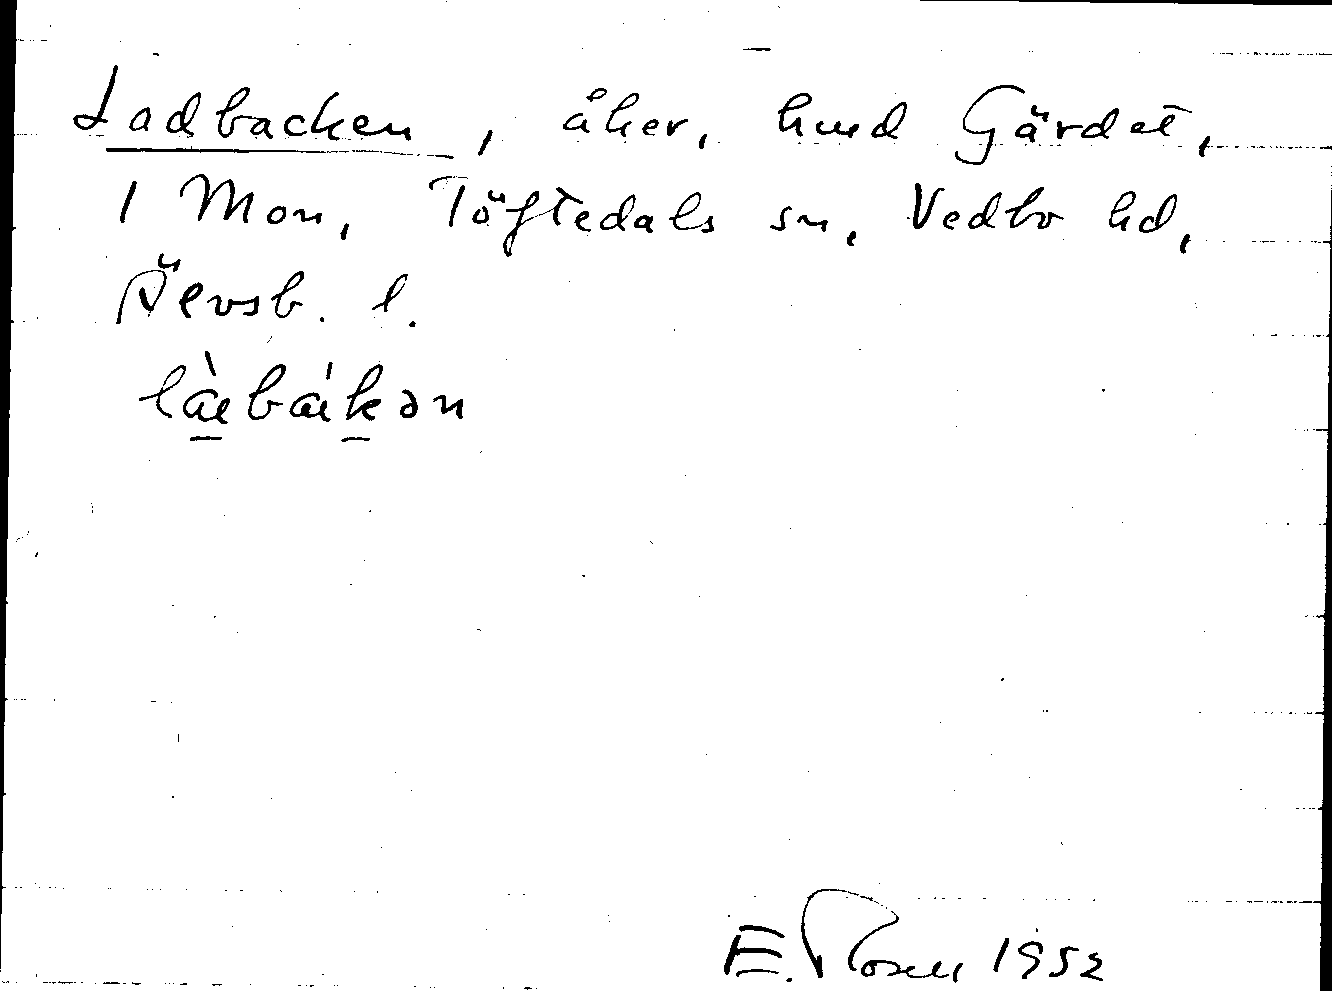 Ladbacken, åker, hmd Gärdet,
1 Mon, Töftedals sn, Vedbo hd,
Älvsb. l.
làbákən
E. Rosell 1952